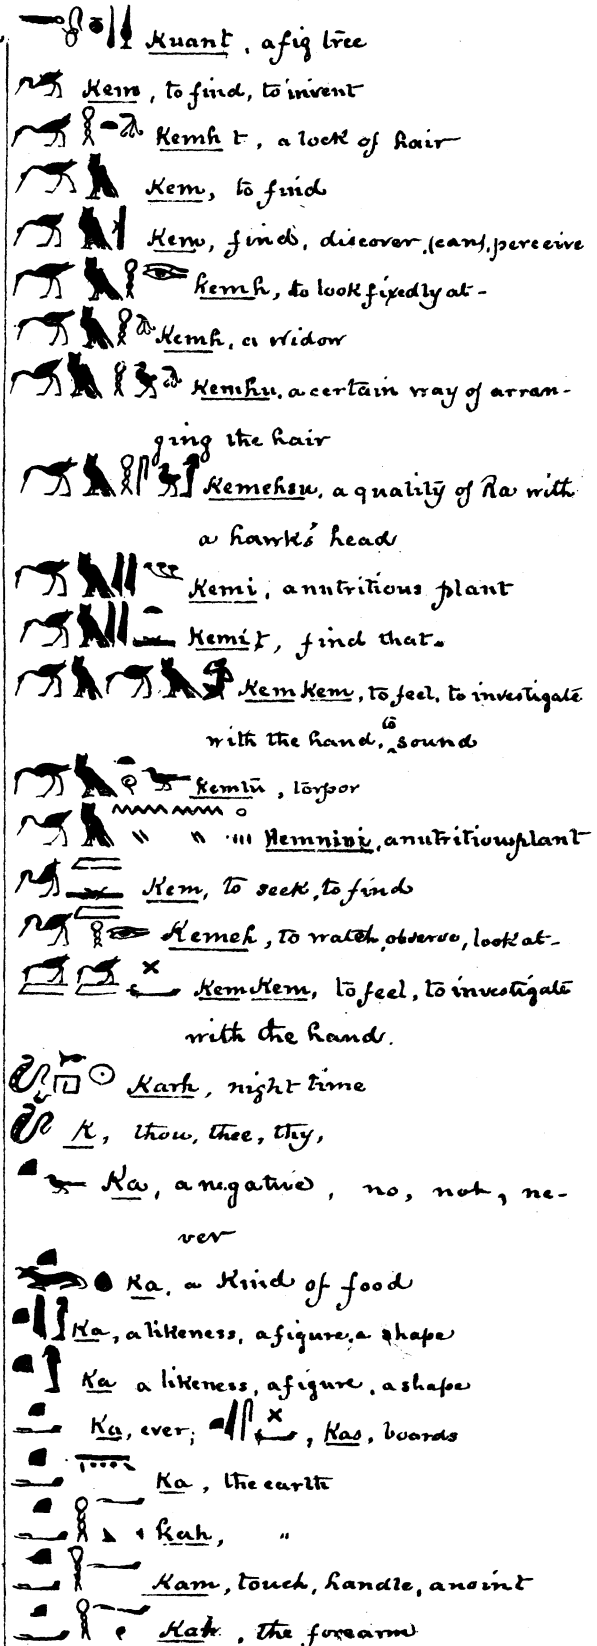 Kuant, a fig tree
Kem, to find, to invent
Kemh t, a lock of hair
Kem, to find
Kem, find, discover, (can), perceive
Kemh, to look fixedly at -
Kemh, a widow
Kemhu, a certain way of arran-
ging the hair
Kemehsu, a quality of Ra with
a hawk's head
Kemi, a nutritious plant
Kemit, find that.
Kem Kem, to feel, to investigate
with the hand, to sound
Kemtu, torpor
Hemnini, a nutritious plant
Kem, to seek, to find
Kemeh, to watch, observe, look at -
Kem Kem, to feel, to investigate
with the hand.
Karh, night time
K, thou, thee, thy,
Ka, a negative, no, not, ne-
ver
Ka, a kind of food
Ka, a likeness, a figure, a shape
Ka a likeness, a figure, a shape
Ka, ever; Kas, boards
Ka, the earth
Kah, "
Kam, touch, handle, anoint
Kah, the forearm